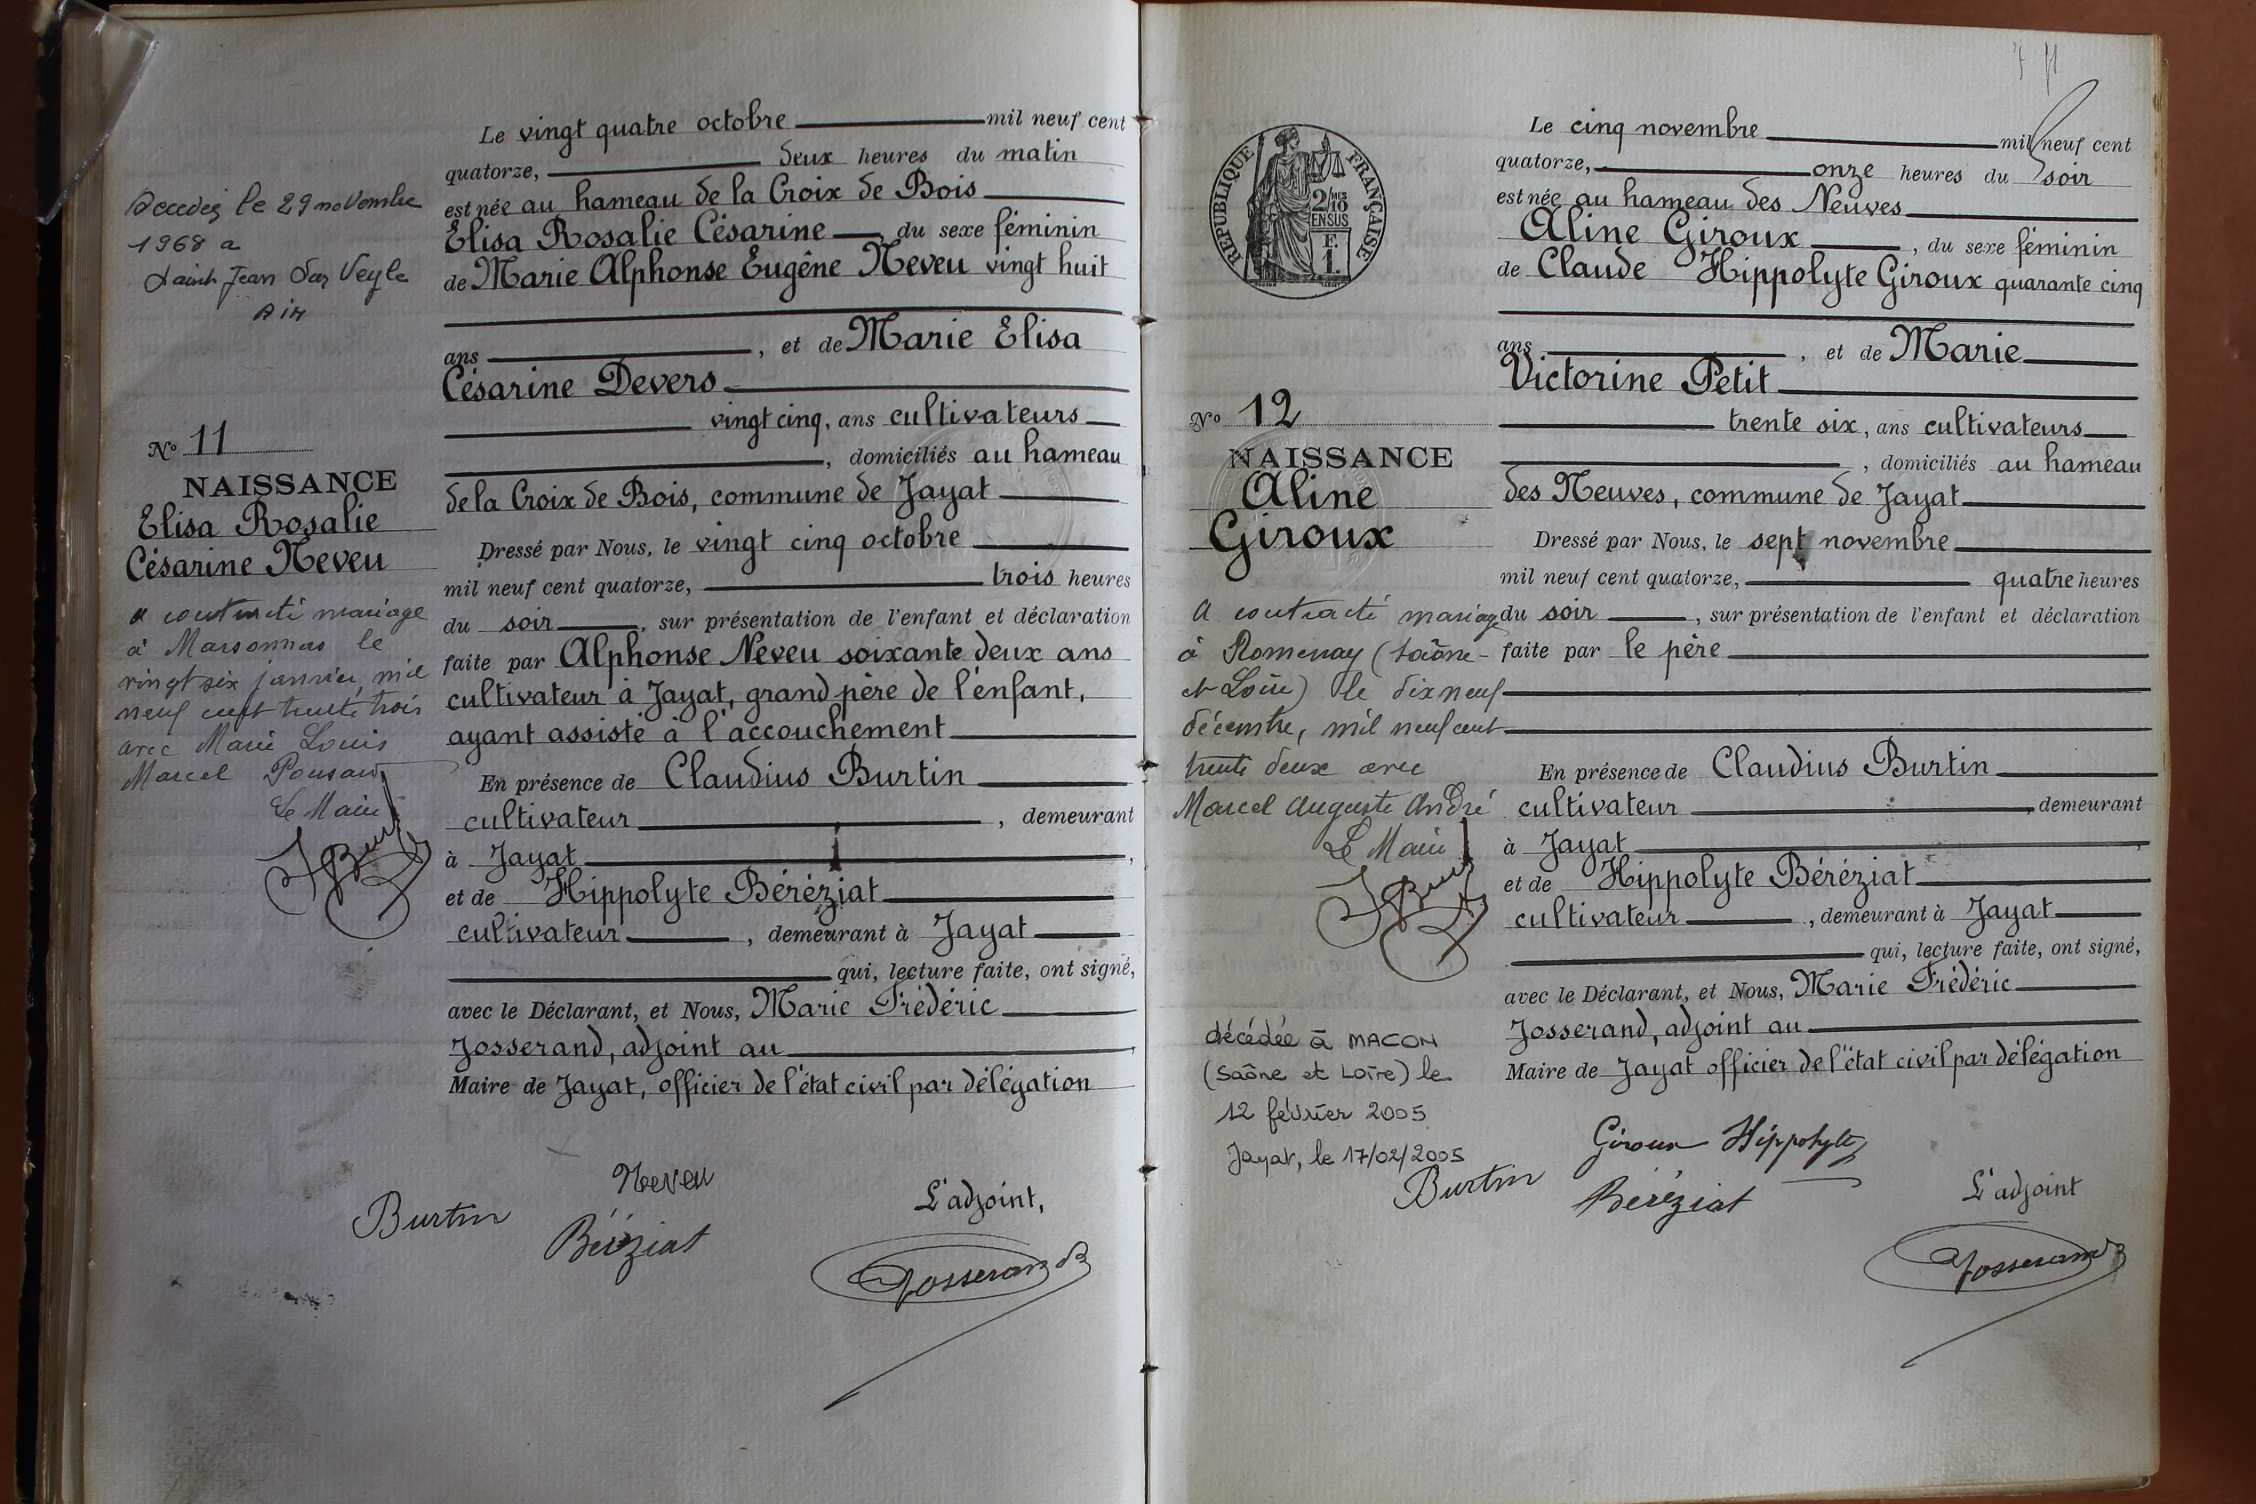 Le vingt quatre octobre mil neuf cent
quatorze, deux heures du matin
est née au hameau de la Croix de Bois
Elisa Rosalie Césarine, du sexe féminin
de Marie Alphonse Eugène Neveu vingt huit
ans, et de Marie Elisa
Césarine Devers
vingt cinq, ans cultivateurs
, domiciliés au hameau
de la Croix de Bois, commune de Jayat
Dressé par Nous, le vingt cinq octobre
mil neuf cent quatorze, trois heures
du soir, sur présentation de l'enfant et déclaration
faite par Alphonse Neveu soixante deux ans
cultivateur à Jayat, grand père de l'enfant,
ayant assisté à l'accouchement
En présence de Claudius Burtin
cultivateur, demeurant
à Jayat,
et de Hippolyte Béréziat
cultivateur, demeurant à Jayat
qui, lecture faite, ont signé,
avec le Déclarant, et Nous, Marie Frédéric
Josserand, adjoint au
Maire de Jayat, officier de l'état civil par délégation
Neveu
Burtin
Béréziat
L'adjoint,
Josserand
Decedeé le 29 novembre
1968 a
Saint Jean sur Veyle
Ain
No 11
NAISSANCE
Elisa Rosalie
Césarine Neveu
a contracté mariage
à Marsonnas le
vingt six janvier mil
neuf cent trente trois
avec Marie Louis
Marcel
Le Maire
RÉPUBLIQUE FRANÇAISE
2/10
EN SUS
F.
1.
No 12
NAISSANCE
Aline
Giroux
a contracté mariage
à Romenay (Saône-
et Loire) le dix neuf
décembre, mil neuf cent
trente deux avec
Marcel Auguste André
Le Maire
décédée à MACON
(Saône et Loire) le
12 février 2005
Jayat, le 17/02/2005
Le cinq novembre mil neuf cent
quatorze, onze heures du soir
est née au hameau des Neuves
Aline Giroux, du sexe féminin
de Claude Hippolyte Giroux quarante cinq
ans, et de Marie
Victorine Petit
trente six, ans cultivateurs
, domiciliés au hameau
des Neuves, commune de Jayat
Dressé par Nous, le sept novembre
mil neuf cent quatorze, quatre heures
du soir, sur présentation de l'enfant et déclaration
faite par le père
En présence de Claudius Burtin
cultivateur, demeurant
à Jayat,
et de Hippolyte Béréziat
cultivateur, demeurant à Jayat
qui, lecture faite, ont signé,
avec le Déclarant, et Nous, Marie Frédéric
Josserand, adjoint au
Maire de Jayat officier de l'état civil par délégation
Giroux Hippolyte
Burtin
Béréziat
L'adjoint
Josserand